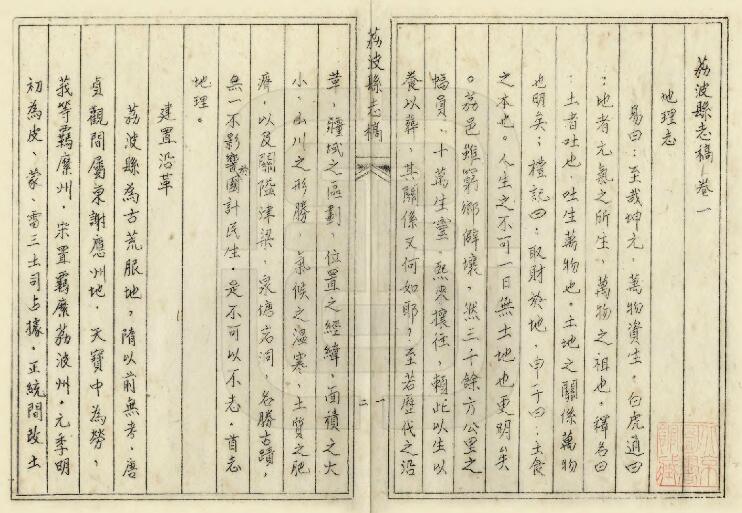 荔波縣志稿卷一
地理志
易曰：至哉坤元，萬物資生。白虎通曰
：地者元氣之所生，萬物之祖也。釋名曰
：土者吐也，吐生萬物也。土地之關係萬物
也明矣；禮記曰：取財於地，申子曰：土食
之本也。人生之不可一日無土地也更明矣
。荔邑雖窮鄉僻壤，然三千餘方公里之
幅員，十萬生靈，熙來攘往，賴此以生以
養以葬，其關係又何如耶？至若歷代之沿
荔波縣志稿
一
二
革，疆域之區劃，位置之經緯，面積之大
小，山川之形勝，氣候之溫寒，土質之肥
瘠，以及關隘津梁，泉塘岩洞，名勝古蹟，
無一不影響於國計民生，是不可以不志。首志
地理。
建置沿革
荔波縣為古荒服地，隋以前無考，唐
貞觀間屬東謝應州地，天寶中為勞、
莪等羈縻州，宋置羈縻荔波州。元季明
初為皮、蒙、雷三土司占據。正統間改土